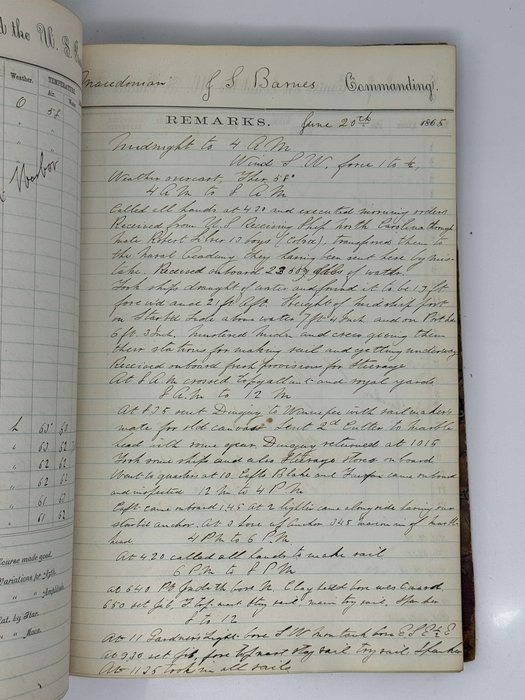 d the U. S.
Weather.
TEMPERATURE.
Air.
0 57
Harbor
63 60
63 62
62 62
62 62
61 61
61 62
Course made good.
Variations for Azth.
" " Amplitude.
Lat. by Star.
" " Moon.
Macedonian J S Barnes Commanding.
REMARKS. June 20th 1865
Midnight to 4 A M
Wind S W. force 1 to
Weather overcast, Ther 58°
4 A M to 8 A M
Called all hands at 4 20 and executed morning orders
Received from U.S. Receiving Ship North Carolina through
Mate Robert 13 boys (Cold), transfered them to
the Naval Academy they having been sent here by mis-
take. Received onboard galls of water.
Took ships draught of water and found it to be 17 ft
forward and 21 ft Aft. Height of midship port
on Starbd side above water 7 ft 4 Inch and on Port
6 ft. 3 Inch. Mustered midn and crew giving them
their stations for making sail and getting underway
Received onboard fresh provisions for Steerage
At 8 A.M crossed topgallant and royal yards
8 A M to 12 M
At 8 35 sent Dinguy to Winnipec with sailmaker's
mate for old canvas. Sent 2d Cutter to marble
head with some gear. Dinguy returned at 1015
Took some ships and also Steerage stores onboard
Went to quarters at 10. Capts Blake and Fairfax came onboard
and inspected 12 M to 4 P M
Capt came onboard 1.45 At 2 came alongside having our
starbd anchor. At 3 hove up anchor 3 45
head. 4 P M to 6 P M
At 4 20 called all hands to make sail
6 P M to 8 P M
at 6 40 Pt Judith bore N. Clay head bore
6 50 set Jib, F. top mast stay sail, main try sail, Spanker
8 to 12
At 11 Gardner's Light bore S W montauk bore
at 9.30 set Jib, fore top mast stay sail try sail Spanker
At 11 35 took in all sails